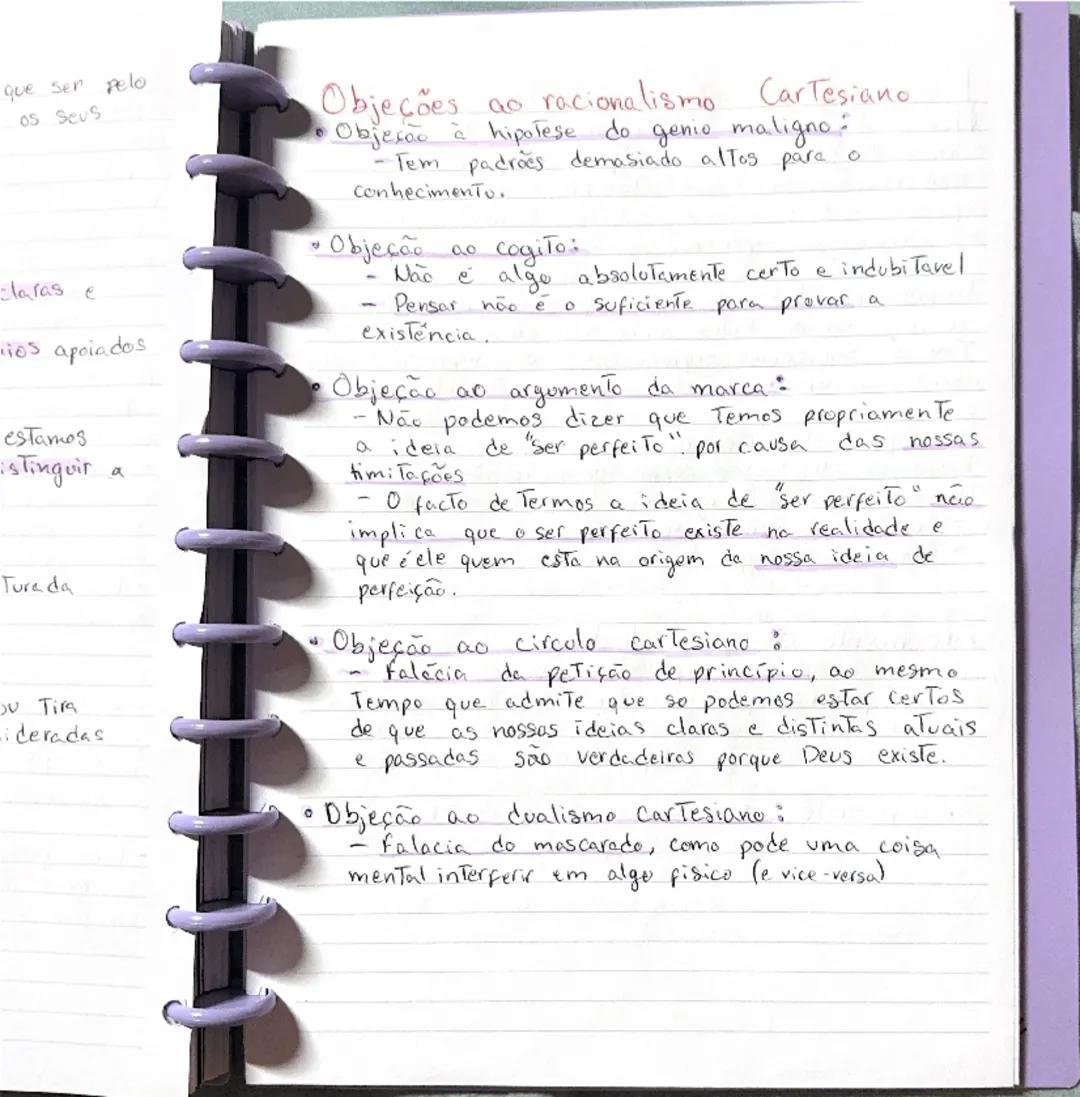 que ser pelo
os seus
claras e
apoiados
estamos
istinguir a
Turada
ou Tira
ideradas
Objeções ao racionalismo Cartesiano
• Objeção à hipotese do genio maligno:
- Tem padrões demasiado altos para o
conhecimento.
• Objeção ao cogito:
- Não é algo absolutamente certo e indubitavel
- Pensar não é o suficiente para provar a
existência.
• Objeção ao argumento da marca:
- Não podemos dizer que temos propriamente
a ideia de "ser perfeito" por causa das nossas
limitações
- O facto de termos a ideia de "ser perfeito" não
implica que o ser perfeito existe na realidade e
que é ele quem está na origem da nossa ideia de
perfeição.
• Objeção ao circulo cartesiano:
- Falácia da petição de princípio, ao mesmo
tempo que admite que so podemos estar certos
de que as nossas ideias claras e distintas atuais
e passadas são verdadeiras porque Deus existe.
• Objeção ao dualismo cartesiano:
- Falacia do mascarado, como pode uma coisa
mental interferir em algo fisico (e vice-versa)